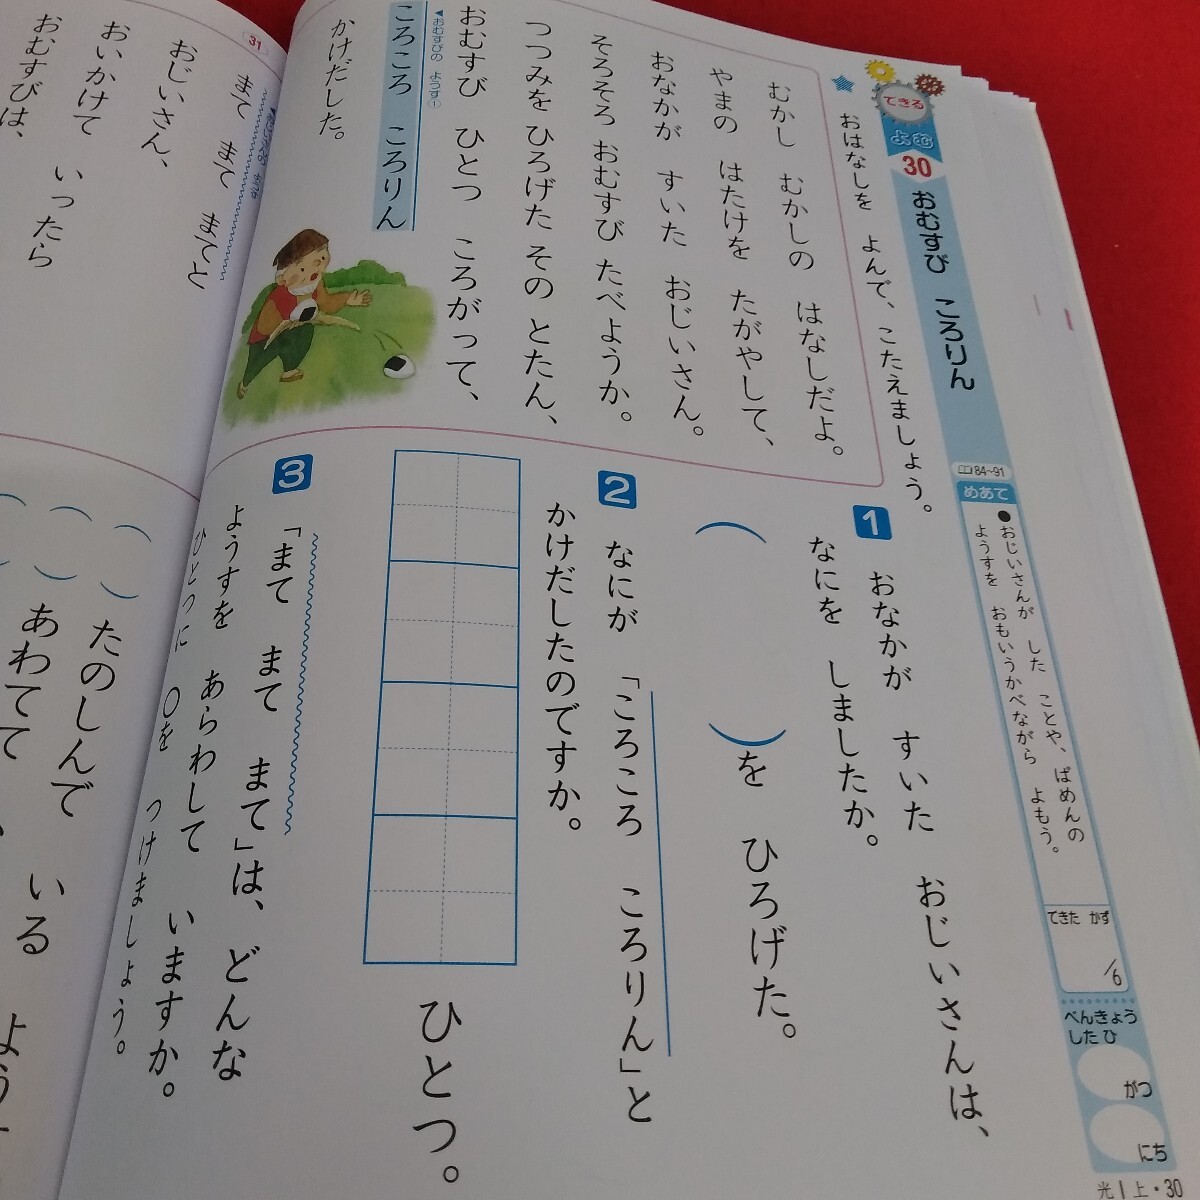 できる
よむ
30
おむすび ころりん
84~91
めあて
●おじいさんが した ことや、ばめんの
ようすを おもいうかべながら よもう。
できた かず
/6
べんきょう
した ひ
がつ
にち
光1上・30
★おはなしを よんで、こたえましょう。
むかし むかしの はなしだよ。
やまの はたけを たがやして、
おなかが すいた おじいさん。
そろそろ おむすび たべようか。
つつみを ひろげた その とたん、
おむすび ひとつ ころがって、
◀おむすびの ようす①
ころころ ころりん
かけだした。
1 おなかが すいた おじいさんは、
なにを しましたか。
( )を ひろげた。
2 なにが 「ころころ ころりん」と
かけだしたのですか。
ひとつ。
3 「まて まて まて」は、どんな
ようすを あらわして いますか。
ひとつに ○を つけましょう。
( )たのしんで
( )あわてて いる よう
31
まて まて まてと
おじいさん、
おいかけて いったら
おむすびは、